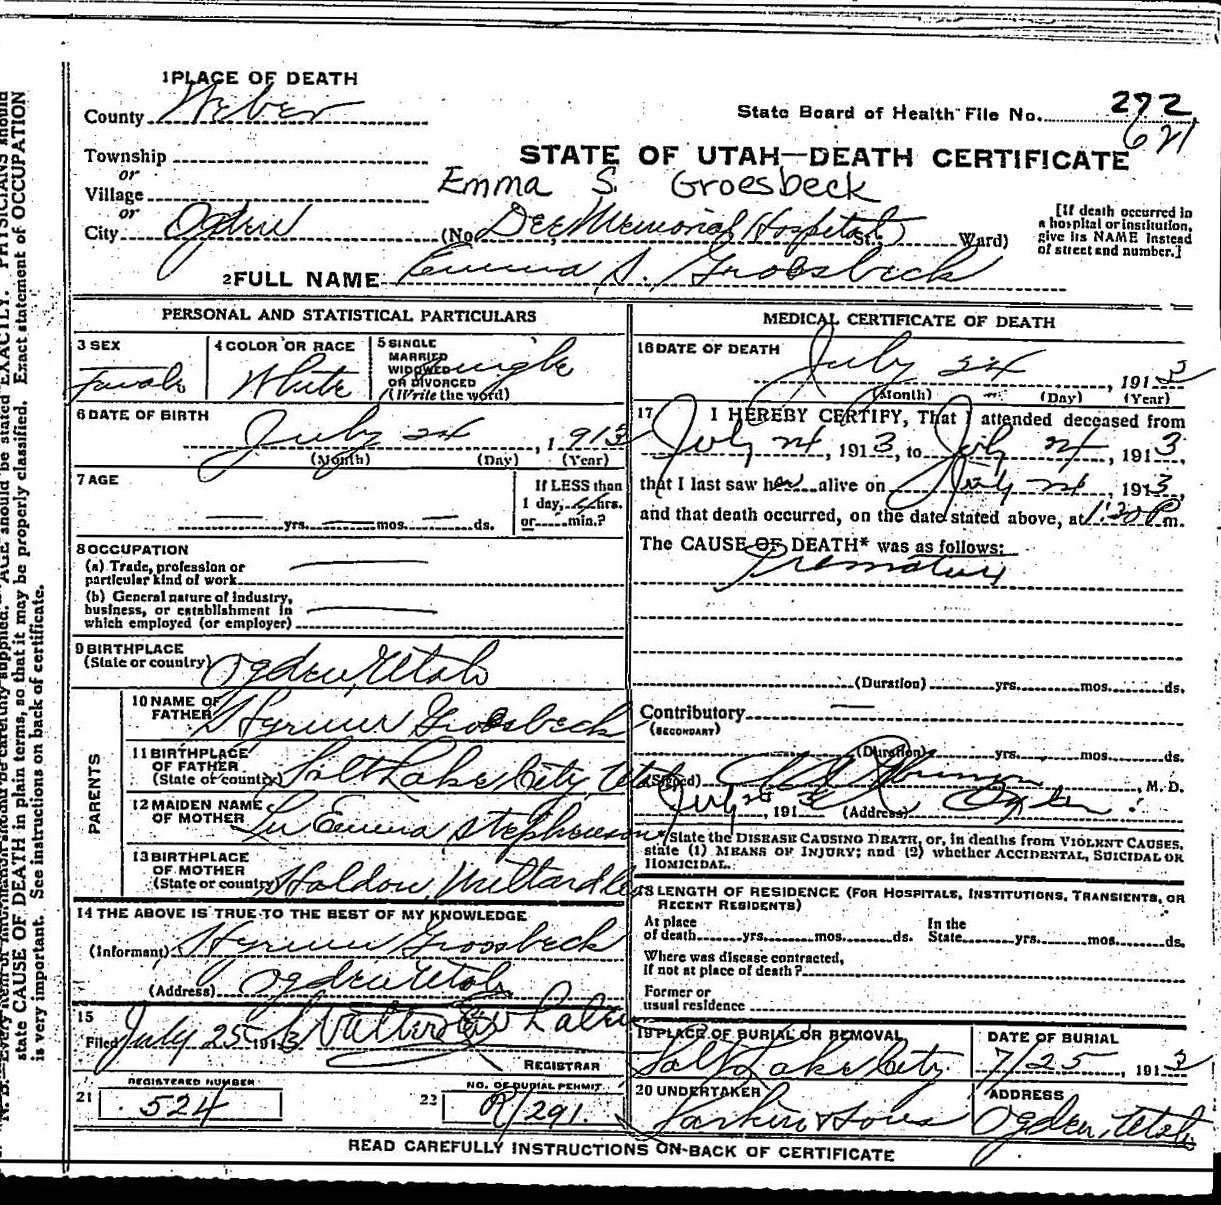 1 PLACE OF DEATH
County Weber
State Board of Health File No. 272
621
Township
or
Village
or
City Ogden
STATE OF UTAH—DEATH CERTIFICATE
Emma S. Groesbeck
(No. Dee Memorial Hospital St.; Ward)
[If death occurred in
a hospital or institution,
give its NAME instead
of street and number.]
2 FULL NAME Emma S. Groesbeck
PERSONAL AND STATISTICAL PARTICULARS
3 SEX
Female
4 COLOR OR RACE
White
5 SINGLE
MARRIED
WIDOWED
OR DIVORCED
(Write the word)
Single
6 DATE OF BIRTH
July 24, 1913
(Month) (Day) (Year)
7 AGE
yrs. mos. ds.
If LESS than
1 day, hrs.
or min.?
8 OCCUPATION
(a) Trade, profession or
particular kind of work
(b) General nature of industry,
business, or establishment in
which employed (or employer)
9 BIRTHPLACE
(State or country) Ogden, Utah
PARENTS
10 NAME OF
FATHER Hyrum Groesbeck
11 BIRTHPLACE
OF FATHER
(State or country) Salt Lake City, Utah
12 MAIDEN NAME
OF MOTHER Lu Emma Stephenson
13 BIRTHPLACE
OF MOTHER
(State or country) Holden, Millard
14 THE ABOVE IS TRUE TO THE BEST OF MY KNOWLEDGE
(Informant) Hyrum Groesbeck
(Address) Ogden Utah
15
Filed July 25 1913
REGISTRAR
21 REGISTERED NUMBER
524
22 NO. OF BURIAL PERMIT
R/291.
MEDICAL CERTIFICATE OF DEATH
16 DATE OF DEATH
July 24, 1913
(Month) (Day) (Year)
17 I HEREBY CERTIFY, That I attended deceased from
July 24, 1913, to July 24, 1913,
that I last saw her alive on July 24, 1913,
and that death occurred, on the date stated above, at 1:30 P.m.
The CAUSE OF DEATH* was as follows:
Premature
(Duration) yrs. mos. ds.
Contributory
(SECONDARY)
(Duration) yrs. mos. ds.
(Signed) , M. D.
July , 191 (Address) Ogden
*State the DISEASE CAUSING DEATH, or, in deaths from VIOLENT CAUSES,
state (1) MEANS OF INJURY; and (2) whether ACCIDENTAL, SUICIDAL OR
HOMICIDAL.
18 LENGTH OF RESIDENCE (FOR HOSPITALS, INSTITUTIONS, TRANSIENTS, OR
RECENT RESIDENTS)
At place
of death yrs. mos. ds.
In the
State yrs. mos. ds.
Where was disease contracted,
if not at place of death?
Former or
usual residence
19 PLACE OF BURIAL OR REMOVAL
Salt Lake City
DATE OF BURIAL
7/25, 1913
20 UNDERTAKER
Larkin & Sons
ADDRESS
Ogden, Utah
READ CAREFULLY INSTRUCTIONS ON BACK OF CERTIFICATE
AGE should be stated EXACTLY. PHYSICIANS should
state CAUSE OF DEATH in plain terms, so that it may be properly classified. Exact statement of OCCUPATION
is very important. See instructions on back of certificate.